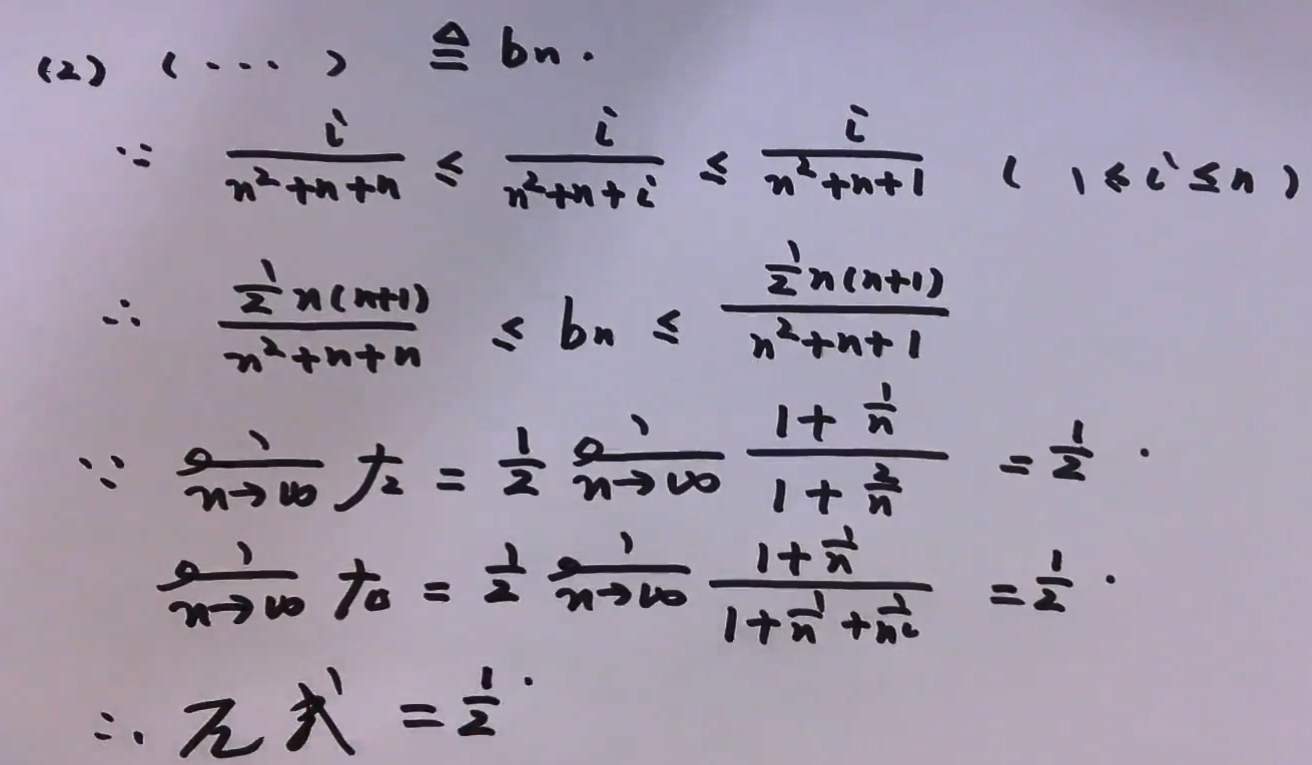 (2) (...) ≜ bn.
∵ i/(n²+n+n) ≤ i/(n²+n+i) ≤ i/(n²+n+1) (1≤i≤n)
∴ (½n(n+1))/(n²+n+n) ≤ bn ≤ (½n(n+1))/(n²+n+1)
∵ n→∞ 左 = ½ n→∞ (1+1/n)/(1+2/n) = ½.
n→∞ 右 = ½ n→∞ (1+1/n)/(1+1/n+1/n²) = ½.
∴ 原式 = ½.